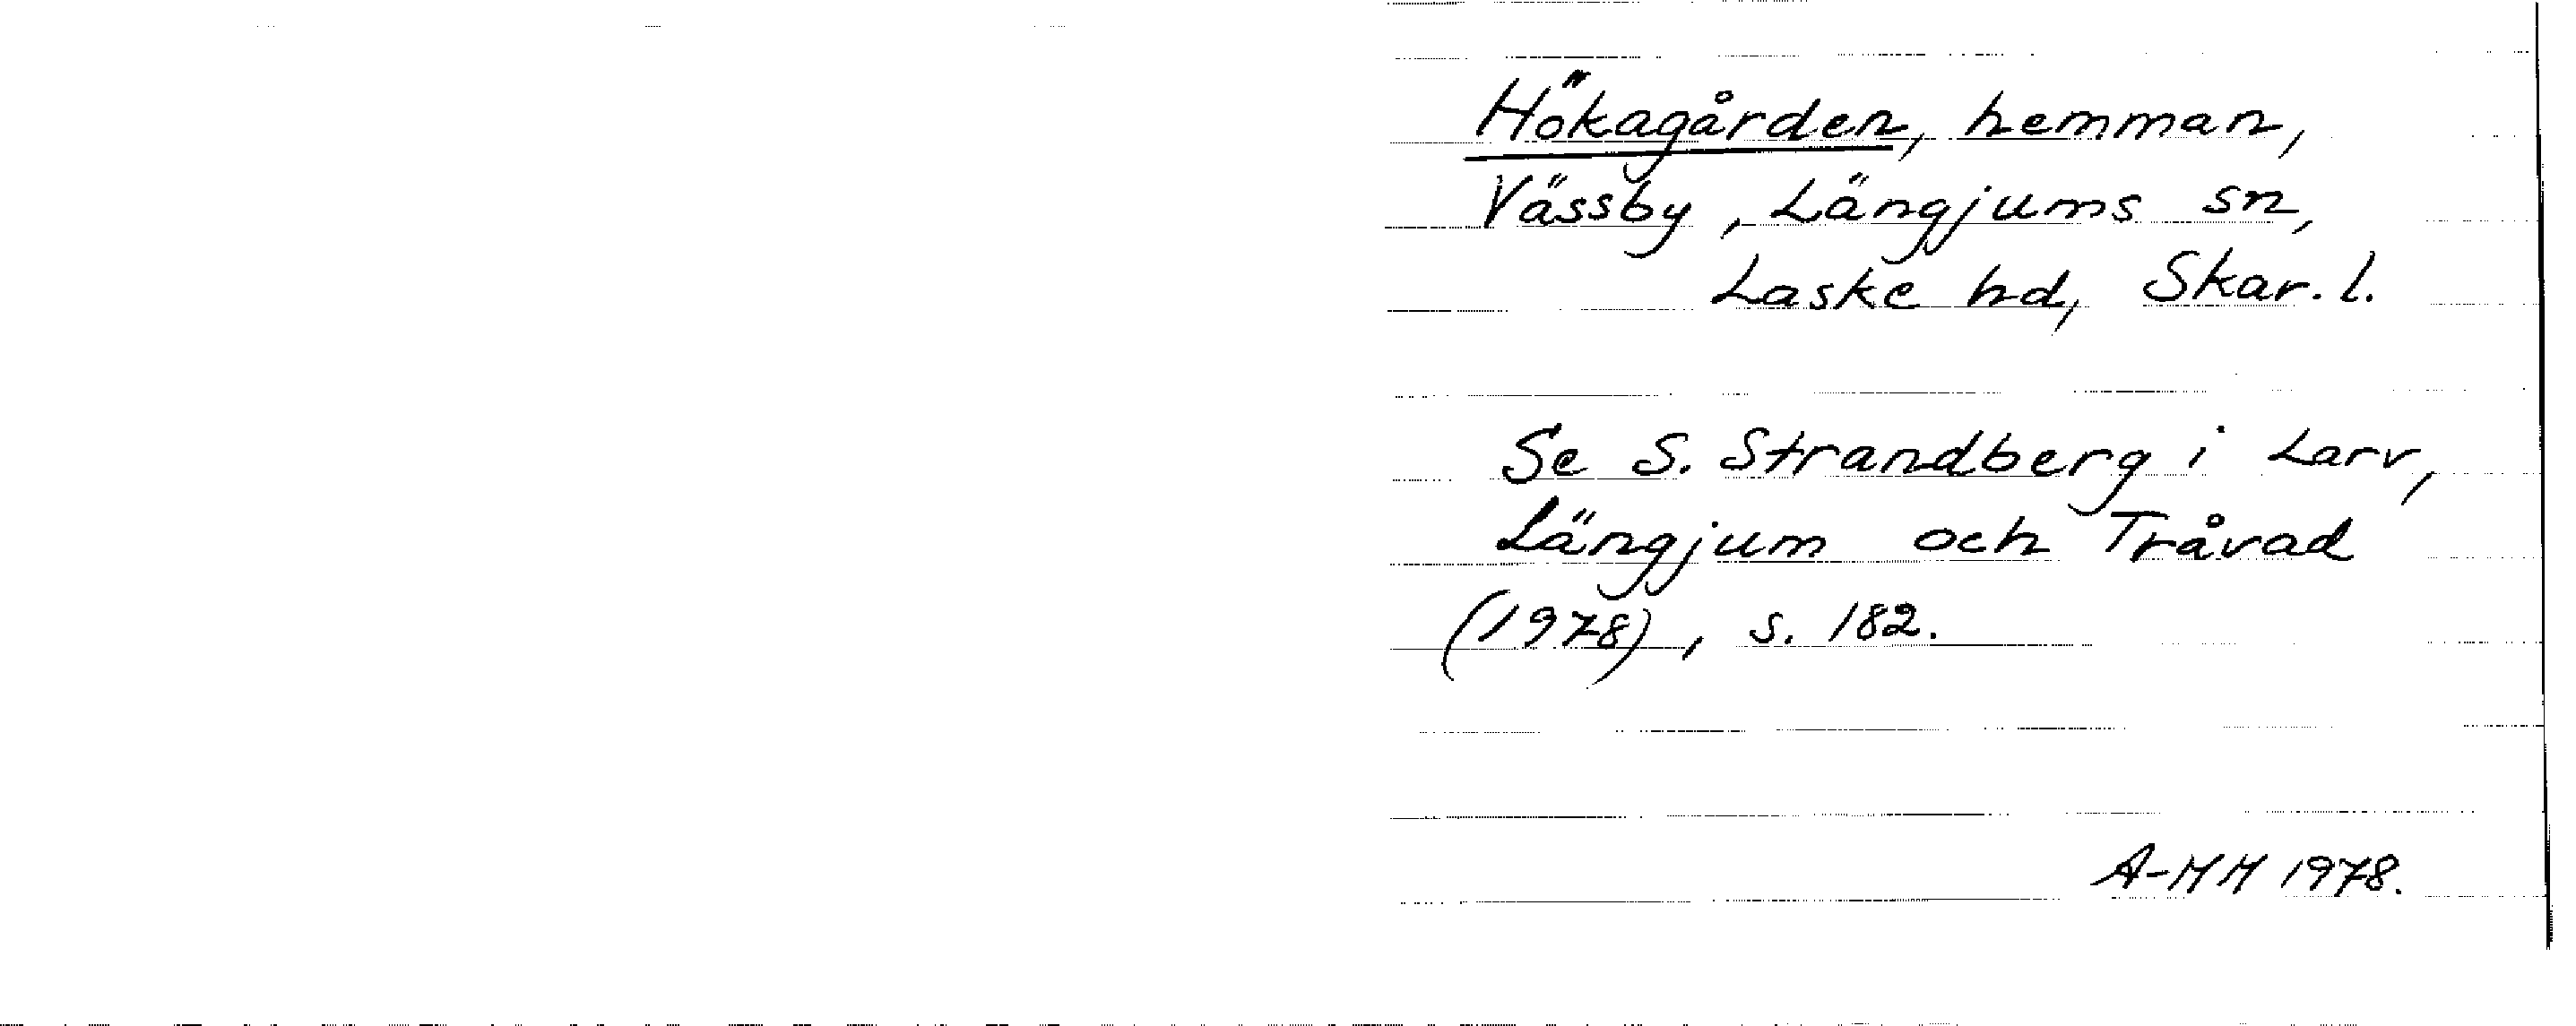 Hökagården, hemman,
Vässby, Längjums sn,
Laske hd, Skar. l.
Se S. Strandberg i Larv,
Längjum och Tråvad
(1978), s. 182.
A-MM 1978.